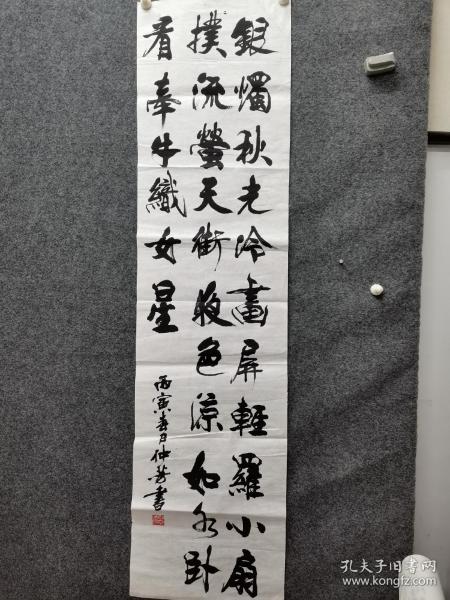 銀燭秋光冷畫屏輕羅小扇
撲流螢天街夜色涼如水卧
看牽牛織女星
丙寅春日仲芳書
孔夫子旧书网
www.kongfz.com